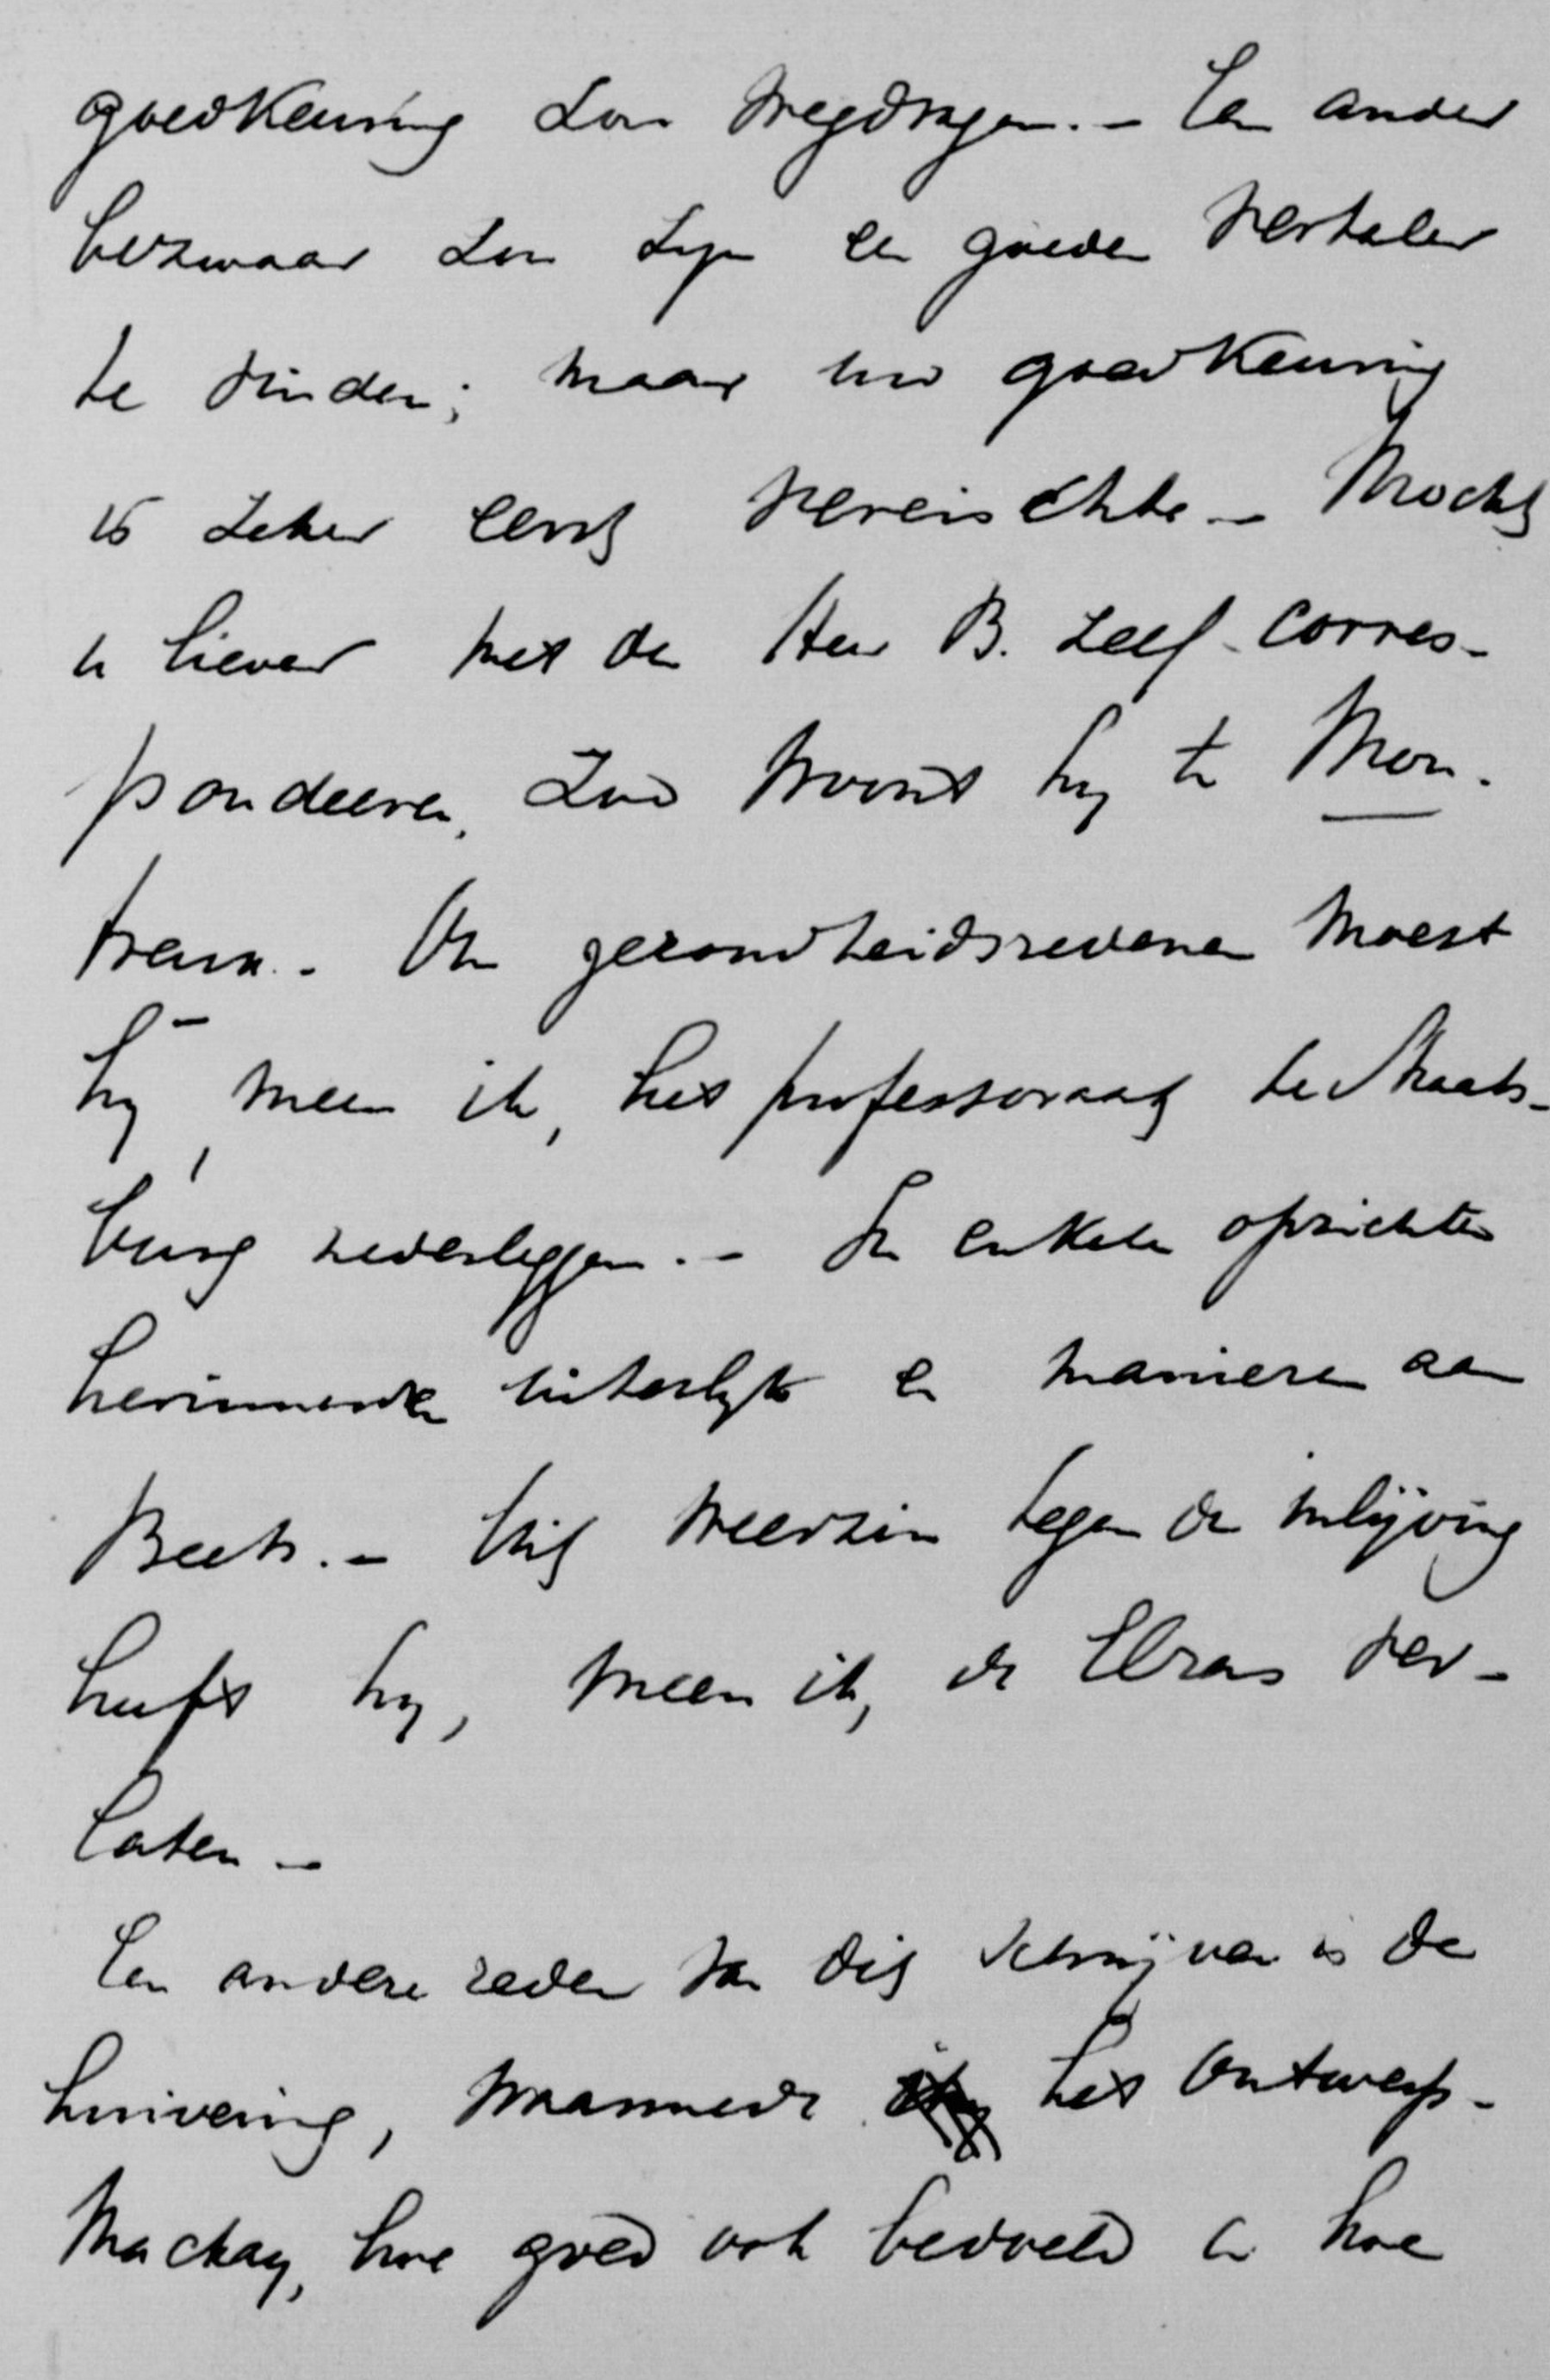 goedkeuring zou wegdragen. - Een ander
bezwaar zou zyn een goeden vertaler
te vinden; maar uw goedkeuring
is zeker eerst vereischte - Mocht
u liever met den Heer B. zelf corres-
pondeeren, dan woont hy te Mon-
treux. - Om gezondheidsredenen moest
hy, meen ik, het professoraat te Straats-
burg nederleggen. - In enkele opzichten
herinnerde uiterlyk en manieren aan
Beets. - Uit weerzin tegen de inlijving
heeft hy, meen ik, de Elzas ver-
laten -
Een andere reden van dit schrijven is de
huivering, waarmede het Ontwerp-
Mackay, hoe goed ook bedoeld en hoe